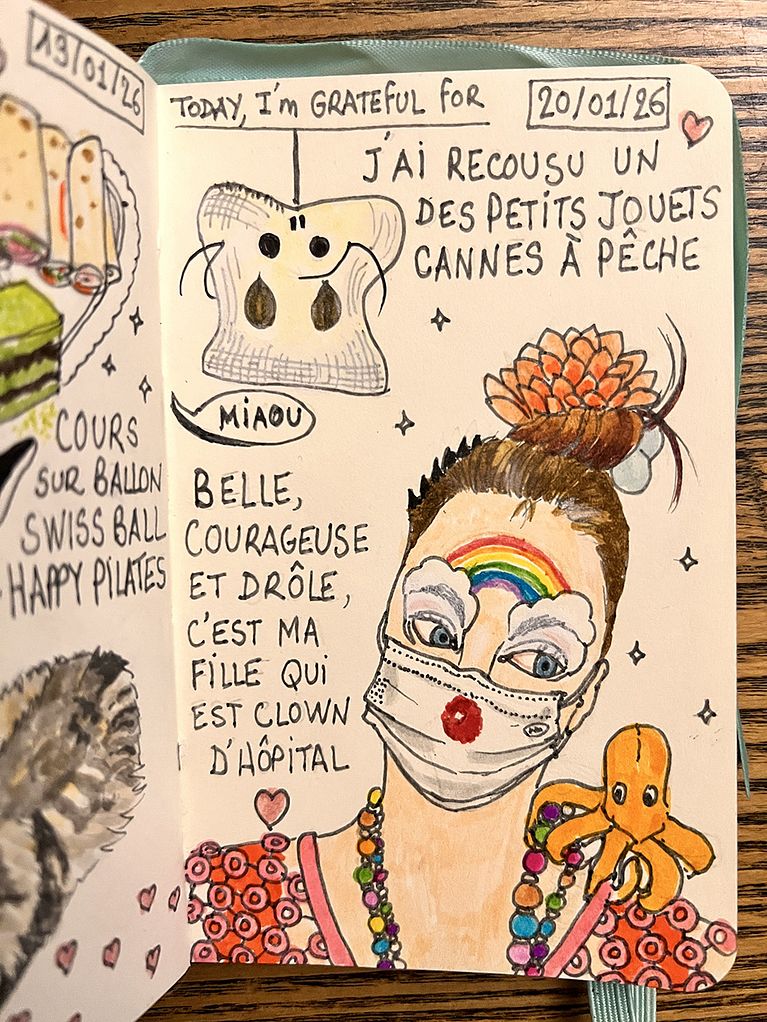 13/01/26
COURS
SUR BALLON
SWISS BALL
HAPPY PILATES
TODAY, I'm GRATEFUL FOR
20/01/26
J'AI RECOUSU UN
DES PETITS JOUETS
CANNES À PÊCHE
MIAOU
BELLE,
COURAGEUSE
ET DRÔLE,
C'EST MA
FILLE QUI
EST CLOWN
D'HÔPITAL